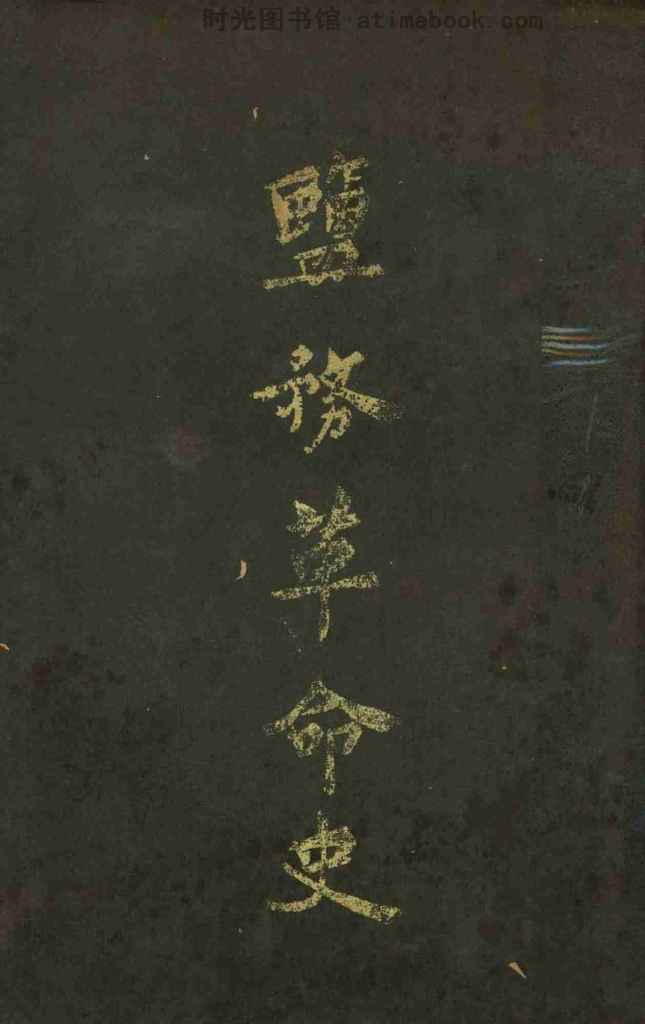 时光图书馆·atimebook.com
鹽務革命史